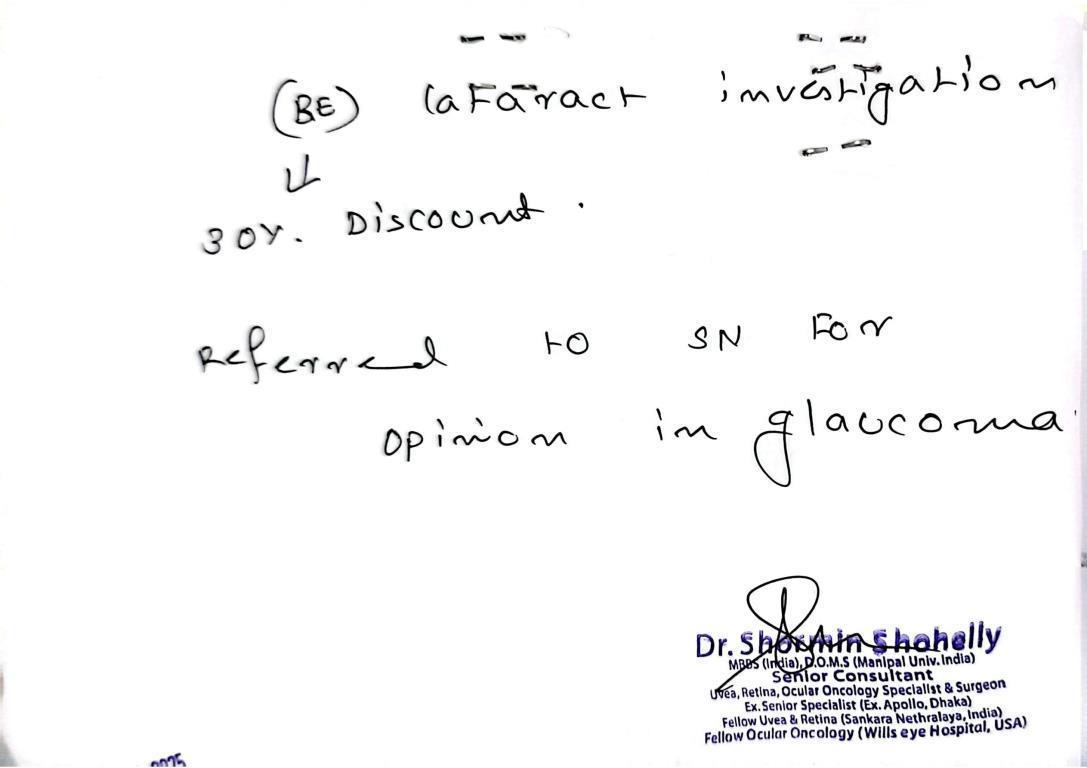 (BE) Cataract investigation
30%. Discount.
Referred to SN For
opinion in glaucoma
Dr. Sharmin Shahelly
MBBS (India), D.O.M.S (Manipal Univ. India)
Senior Consultant
Uvea, Retina, Ocular Oncology Specialist & Surgeon
Ex. Senior Specialist (Ex. Apollo, Dhaka)
Fellow Uvea & Retina (Sankara Nethralaya, India)
Fellow Ocular Oncology (Wills eye Hospital, USA)